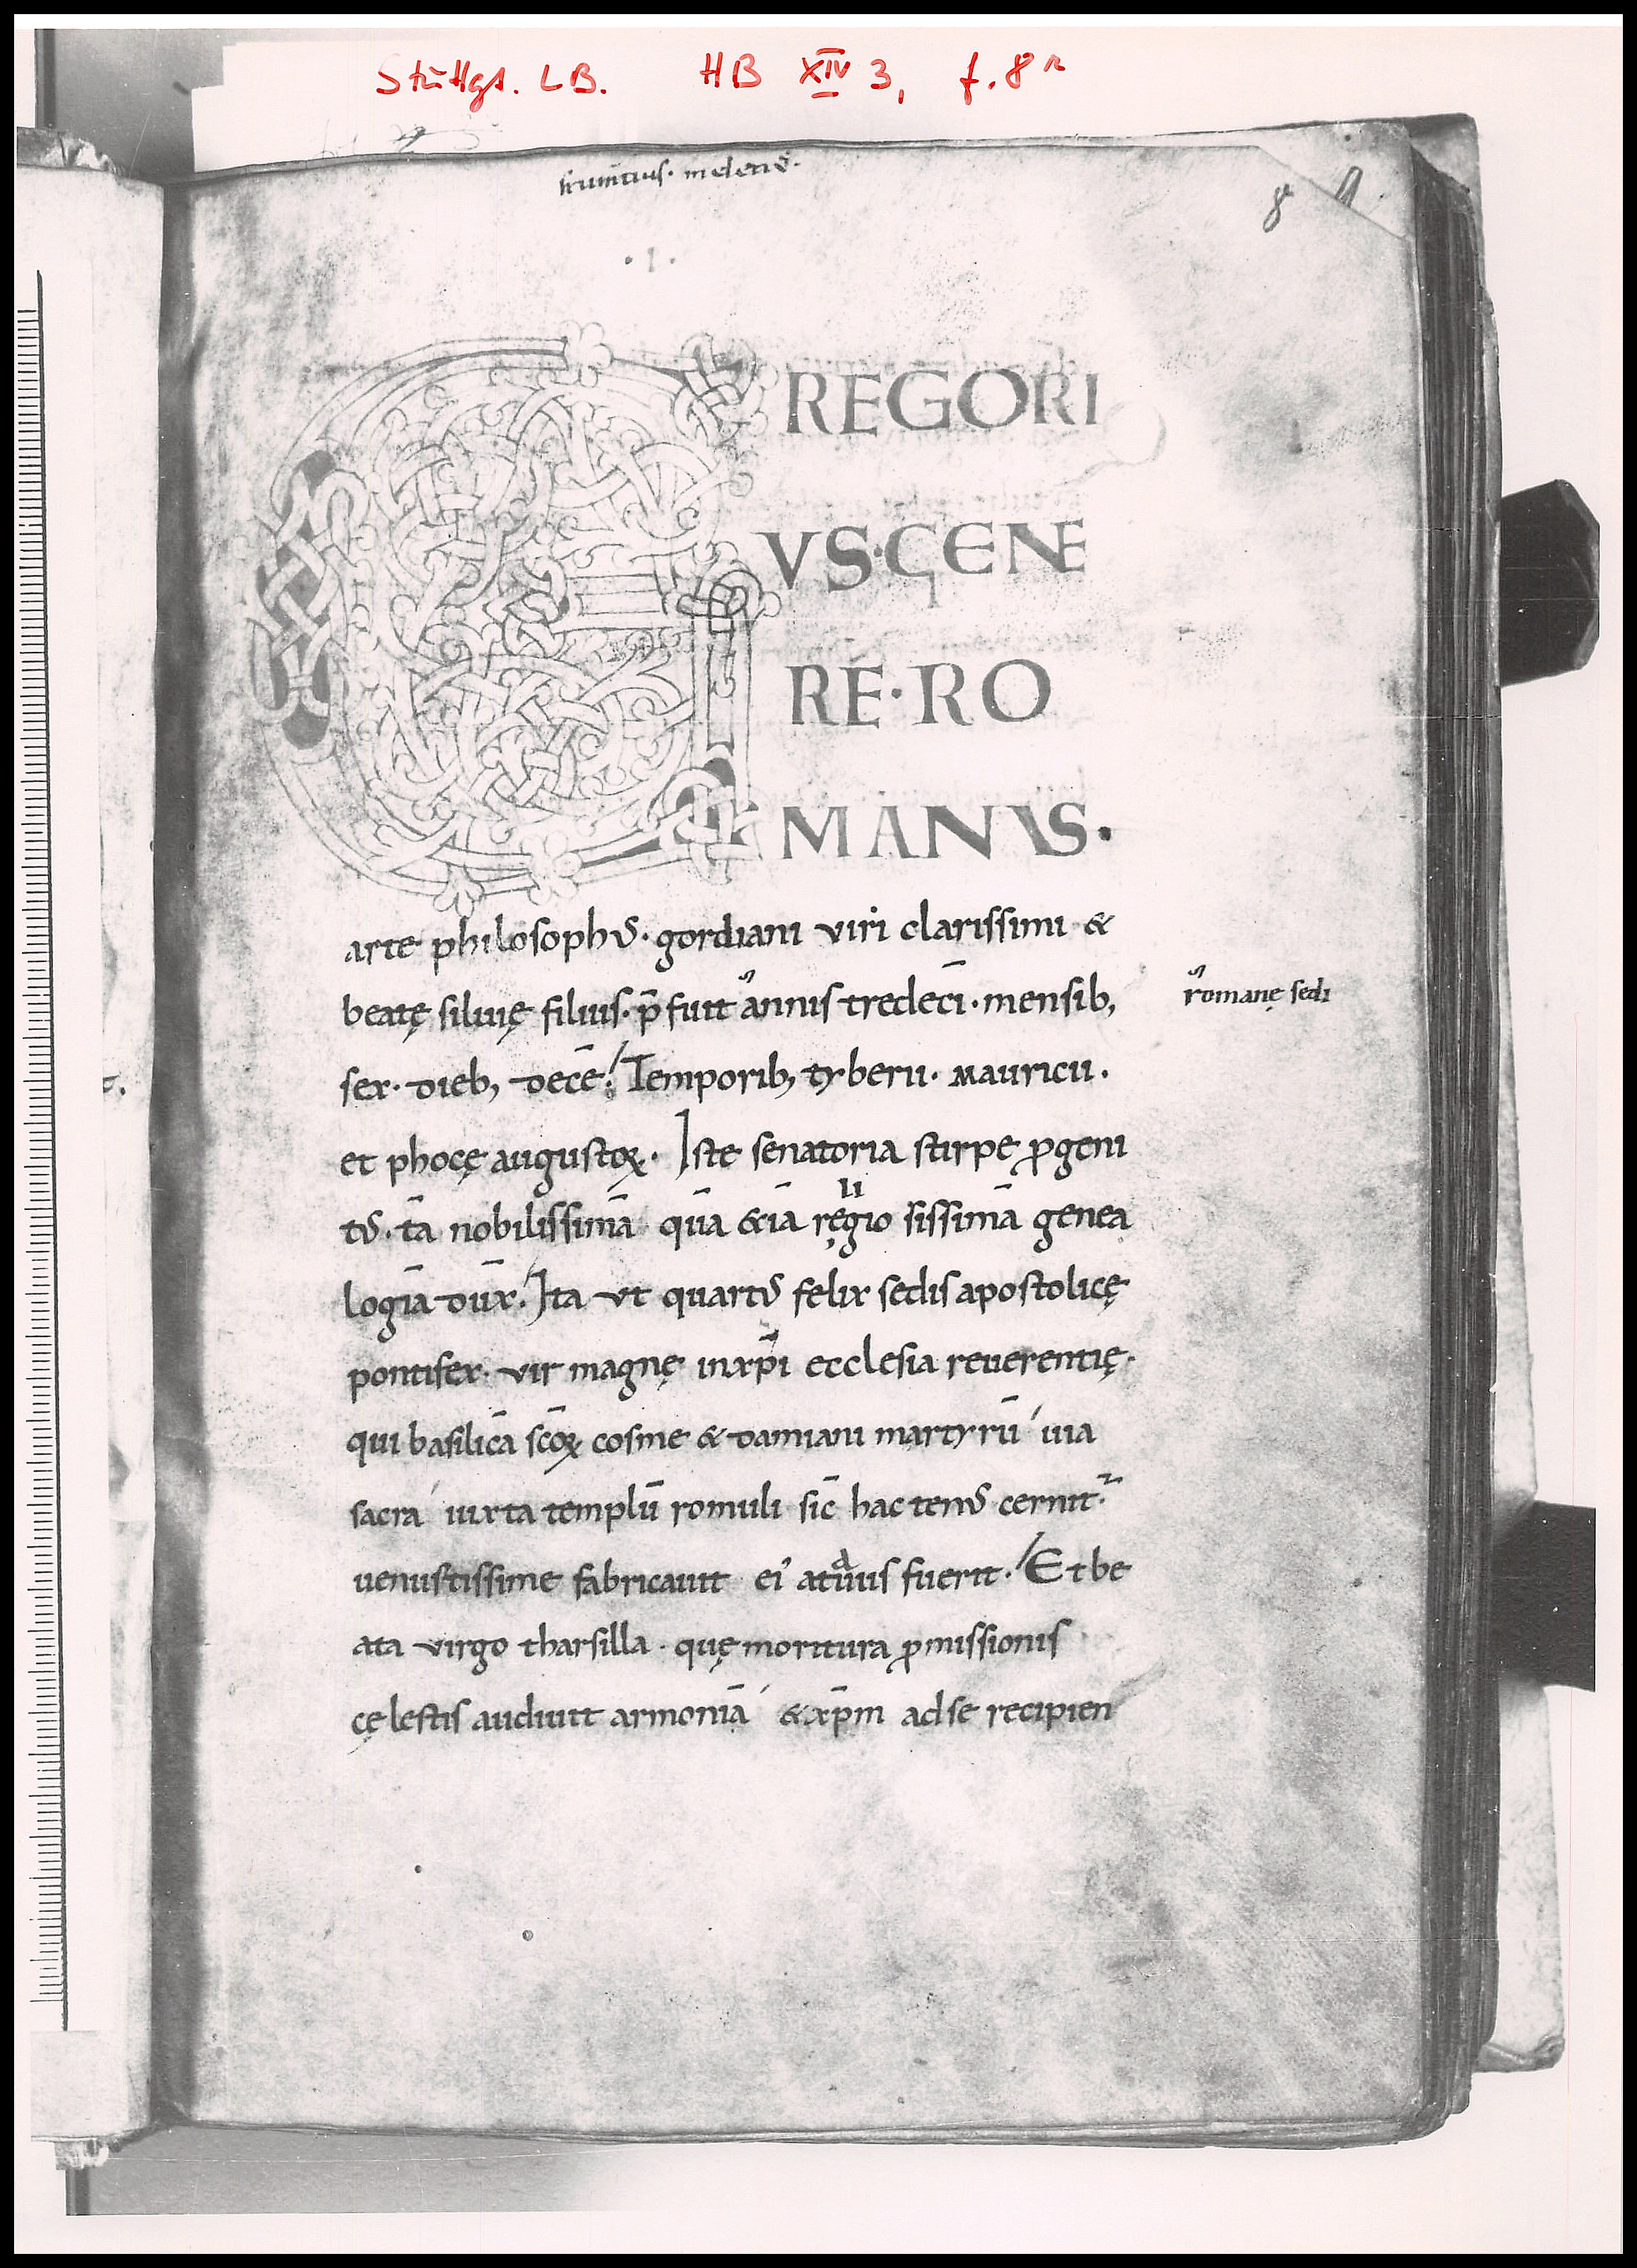 Stuttgt. LB. HB XIV 3, f. 8r
·I·
8
GREGORI
VS·GENE
RE·RO
MANVS·
arte philosophꝰ· gordiani viri clarissimi &
beatę siluię filius· p̄fuit annis tredecī· mensib;
romanę sedi
sex· dieb; decē· Temporib; tyberii· mauricii·
et phocę augustoꝝ· Iste senatoria stirpe ꝓgeni
tꝰ· tā nobilissimā quā &iā ręgio sissimā genea
li
logiā dūx· Ita vt quartꝰ felix sedis apostolicę
pontifex· vir magnę in xp̄i ecclesia reuerentię·
qui basilicā sc̄oꝝ cosme & damiani martyrū uia
sacra iuxta templū romuli sic̄ hactenꝰ cernit᷑·
uenustissime fabricauit ei' atauus fuerit· Et be
ata virgo tharsilla· quę moritura ꝓmissionis
cęlestis audiuit armoniā & xp̄m ad se recipien